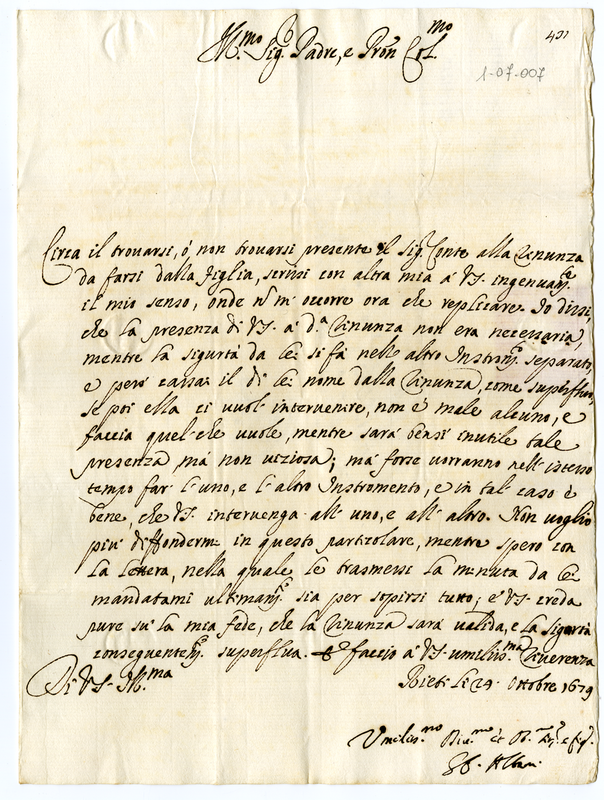 431
Ill.mo Sig. Padre, e Pron Col.mo
1-07-007
Circa il trouarsi, ò non trouarsi presente il sig. Conte alla Rinunza
da farsi dalla figlia, scrissi con altra mia à VS. ingenuam.te
il mio senso, onde nō m'occorre ora che replicare. Io dissi,
che la presenza di VS. à d.a Rinunza non era necessaria,
mentre la sigurtà da lei si fà nell'altro Instrom. separato,
e però cassai il di lei nome dalla Rinunza, come superfluo,
se poi ella ci vuol' intervenire, non è male alcuno, e
faccia quel che vuole, mentre sarà bensì inutile tale
presenza mà non viziosa; mà forse vorranno nell'istesso
tempo far l'uno, e l'altro Instromento, e in tal caso è
bene, che VS. intervenga all'uno, e all'altro. Non voglio
più diffondermi in questo particolare, mentre spero con
la lettera, nella quale le trasmessi la minuta da lei
mandatami ultimam.te sia per sopirsi tutto; e VS. creda
pure sù la mia fede, che la Rinunza sarà valida, e la sigurtà
conseguentem.te superflua. E faccio à VS. umiliss.ma Riverenza
Di VS. Ill.ma
Rieti li 24 Ottobre 1679
Umiliss.mo Div.mo et Ob.
Alban.